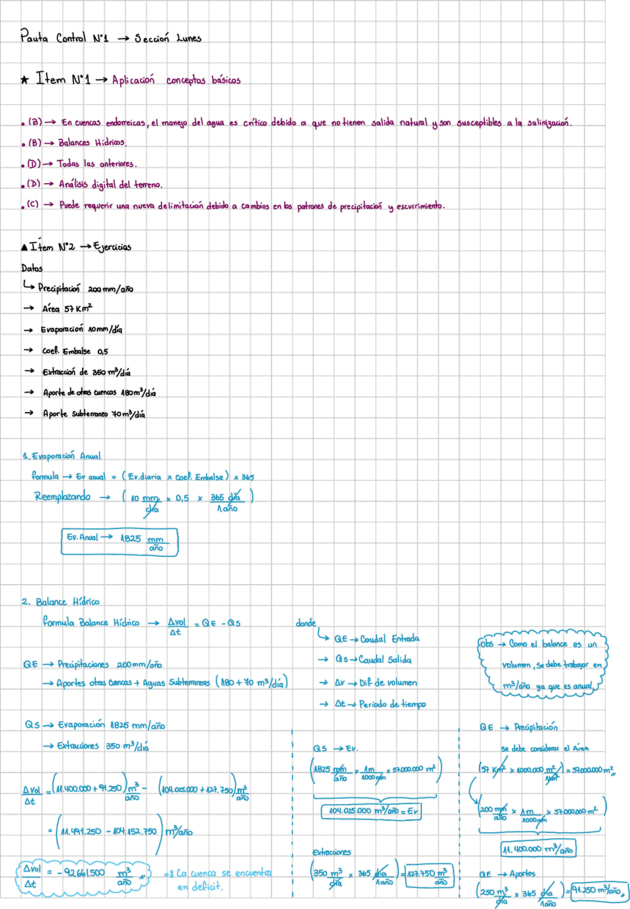 Pauta Control N°1 → Sección Lunes
★ Item N°1 → Aplicación conceptos básicos
• (B) → En cuencas endorreicas, el manejo del agua es crítico debido a que no tienen salida natural y son susceptibles a la salinización.
• (B) → Balances Hídricos.
• (D) → Todas las anteriores.
• (D) → Análisis digital del terreno.
• (C) → Puede requerir una nueva delimitación debido a cambios en los patrones de precipitación y escurrimiento.
▲ Item N°2 → Ejercicios
Datos
↳ Precipitación 200 mm/año
→ Área 57 Km²
→ Evaporación 10 mm/día
→ Coef. Embalse 0,5
→ Extracción de 350 m³/día
→ Aporte de otras cuencas 180 m³/día
→ Aporte Subterraneo 70 m³/día
1. Evaporación Anual
Formula → Ev anual = (Ev. diaria × Coef. Embalse) × 365
Reemplazando → (10 mm/día × 0,5 × 365 día/1 año)
Ev. Anual → 1825 mm/año
2. Balance Hídrico
Formula Balance Hídrico → Δvol/Δt = QE - QS
donde
↳ QE → Caudal Entrada
→ QS → Caudal Salida
→ Δv → Dif. de volumen
→ Δt → Periodo de tiempo
obs → Como el balance es un
volumen, se debe trabajar en
m³/año ya que es anual
QE → Precipitaciones 200 mm/año
→ Aportes otras cuencas + Aguas Subterraneas (180 + 70 m³/día)
QS → Evaporación 1825 mm/año
→ Extracciones 350 m³/día
Δvol/Δt = (11.400.000 + 91.250) m³/año - (104.025.000 + 127.750) m³/año
= (11.491.250 - 104.152.750) m³/año
Δvol/Δt = -92.661.500 m³/año
⇒ La cuenca se encuentra
en deficit.
QS → Ev.
(1825 mm/año × 1m/1000mm × 57.000.000 m²)
104.025.000 m³/año = Ev
Extracciones
(350 m³/día × 365 día/1año) = 127.750 m³/año
QE → Precipitación
se debe considerar el Área
(57 Km² × 1000.000 m²/1Km²) = 57.000.000 m²
(200 mm/año × 1m/1000mm × 57.000.000 m²)
11.400.000 m³/año
QE → Aportes
(250 m³/día × 365 día/1año) = 91.250 m³/año